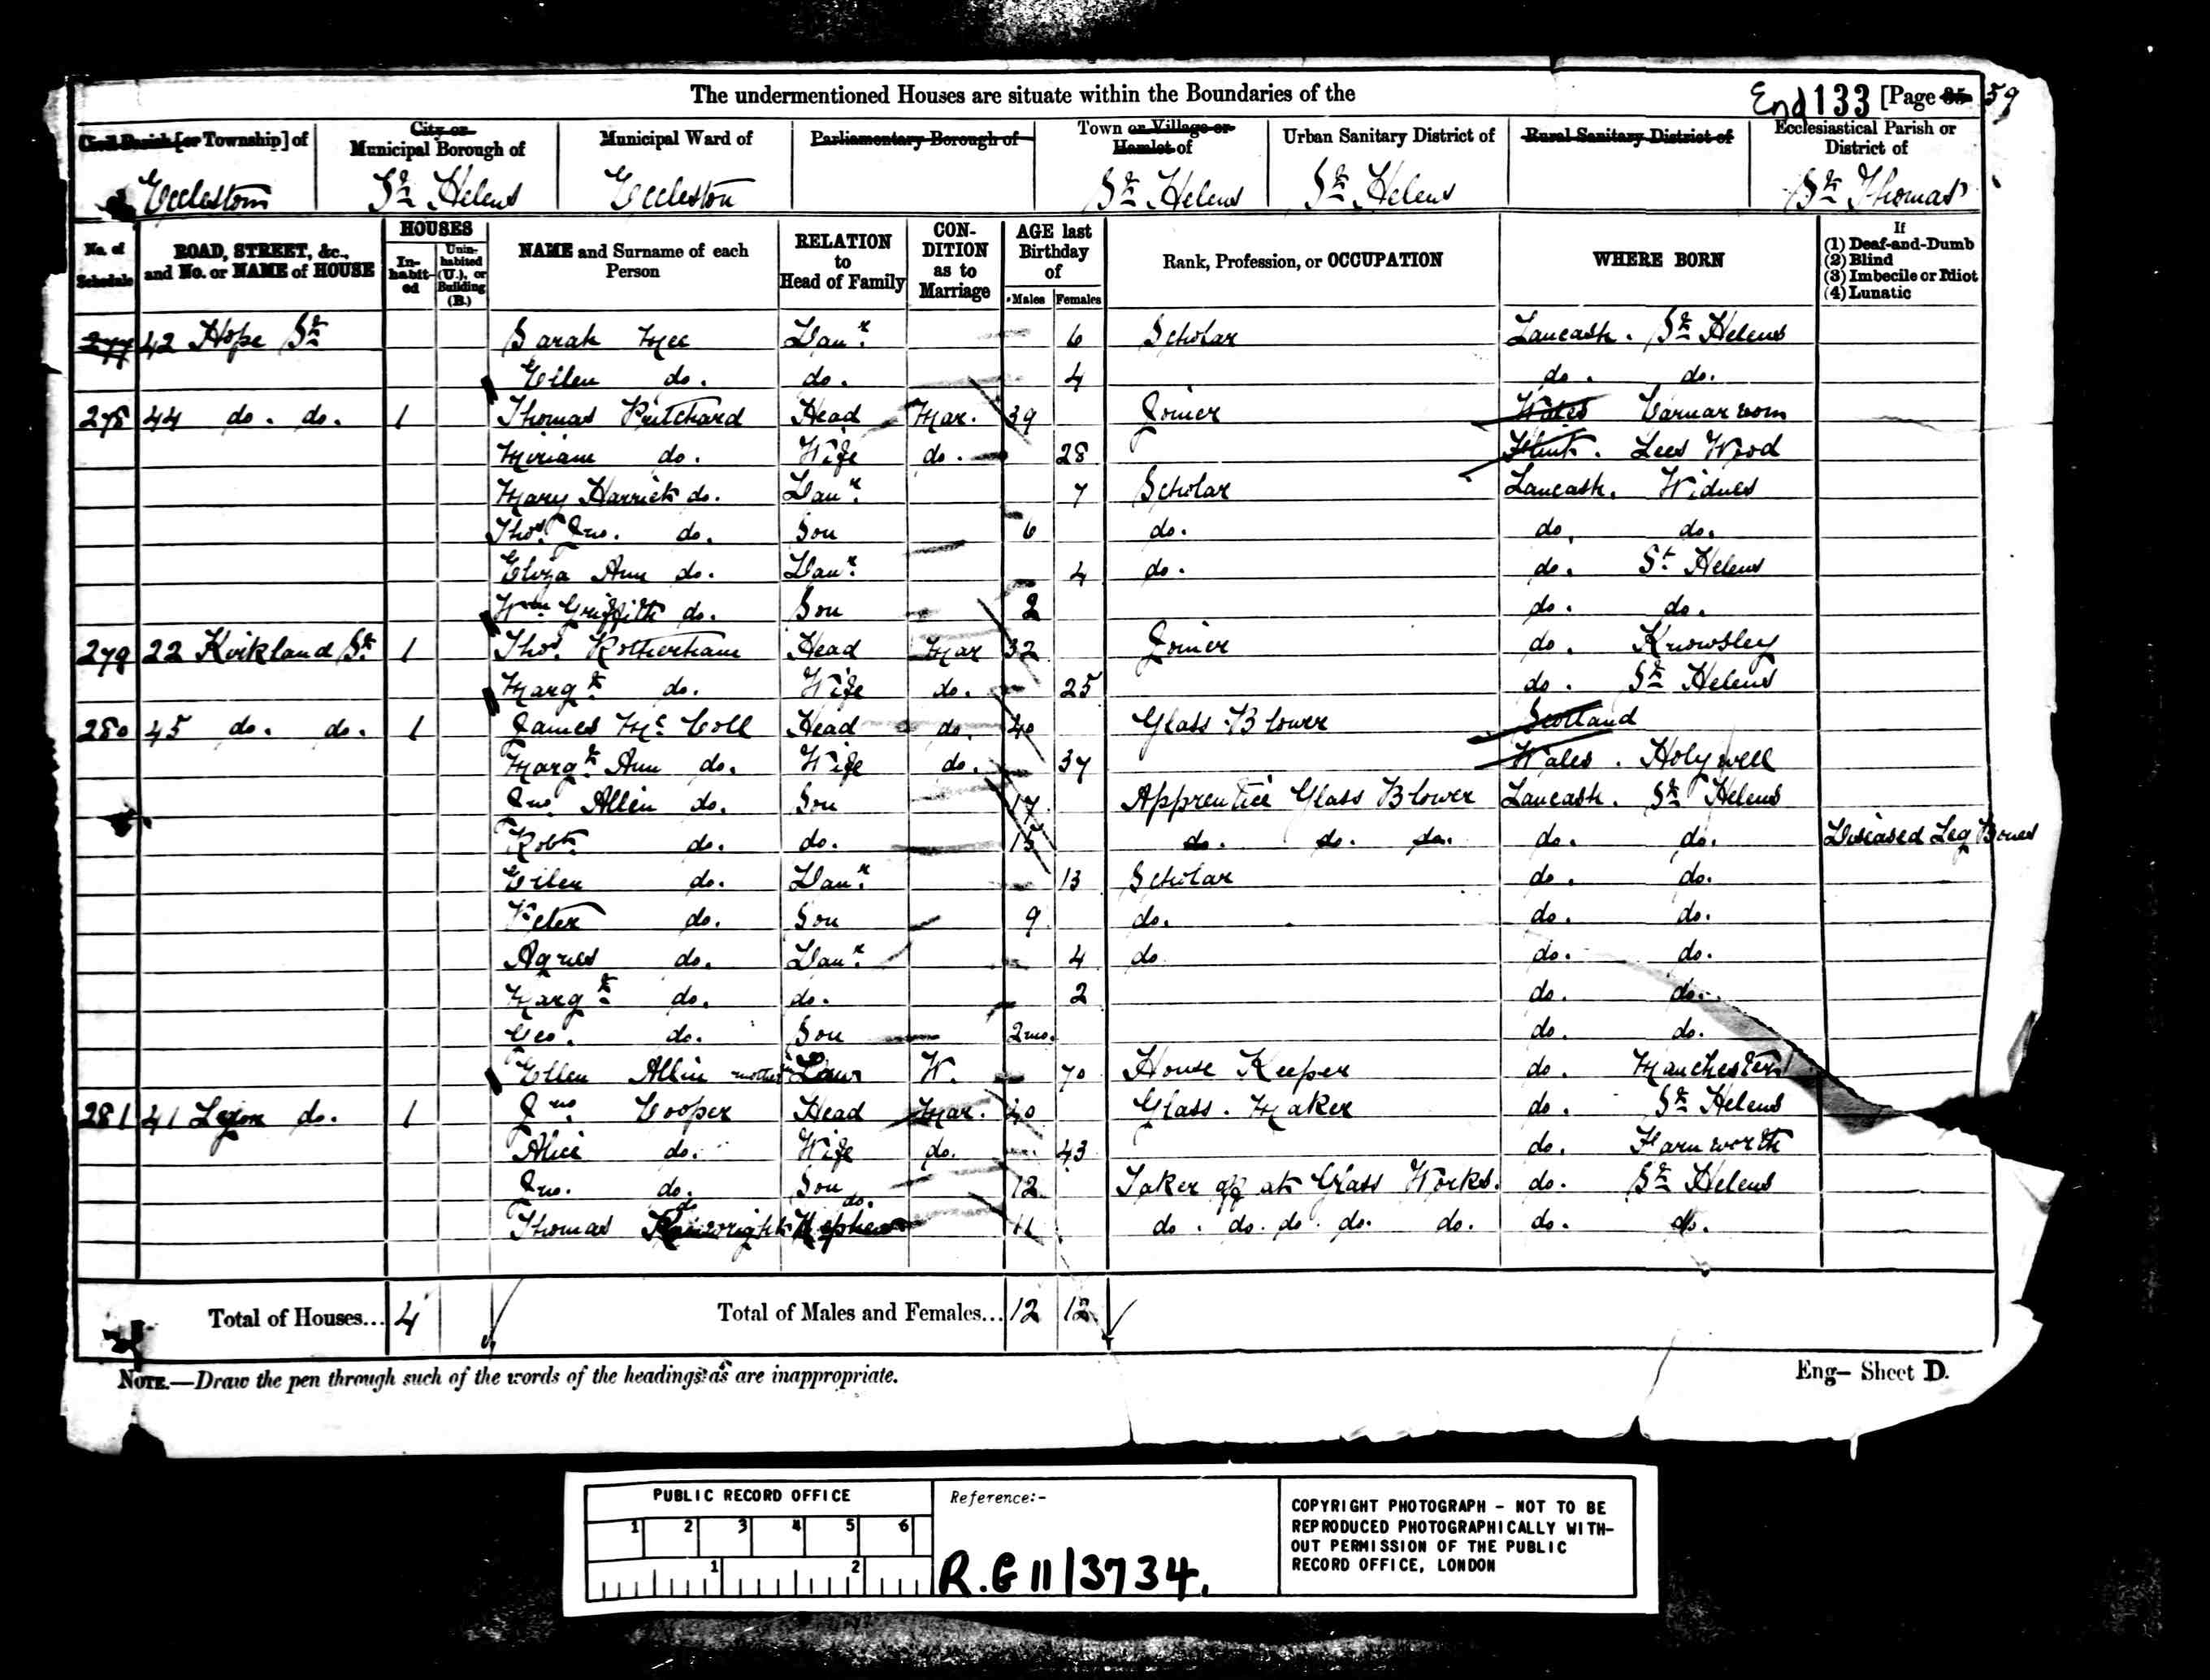 The undermentioned Houses are situate within the Boundaries of the End 133 [Page 35 59
Civil Parish [or Township] of City or Municipal Borough of Municipal Ward of Parliamentary Borough of Town or Village or Hamlet of Urban Sanitary District of Rural Sanitary District of Ecclesiastical Parish or District of
Eccleston St Helens Eccleston St Helens St Helens St Thomas
No. of Schedule ROAD, STREET, &c., and No. or NAME of HOUSE HOUSES In-habit-ed Unin-habited (U.), or Building (B.) NAME and Surname of each Person RELATION to Head of Family CON-DITION as to Marriage AGE last Birthday of Males Females Rank, Profession, or OCCUPATION WHERE BORN If (1) Deaf-and-Dumb (2) Blind (3) Imbecile or Idiot (4) Lunatic
277 42 Hope St Sarah Mee Daur. 6 Scholar Lancash. St Helens
Ellen do. do. 4 do. do.
278 44 do. do. 1 Thomas Pritchard Head Mar. 39 Joiner Wales Carnarvon
Miriam do. Wife do. 28 Flint. Lees Wood
Mary Harriet do. Daur. 7 Scholar Lancash. Widnes
Thos. Jno. do. Son 6 do. do. do.
Eliza Ann do. Daur. 4 do. do. St Helens
Wm Griffith do. Son 2 do. do.
279 22 Kirkland St. 1 Thos. Rotherham Head Mar 32 Joiner do. Knowsley
Margt. do. Wife do. 25 do. St Helens
280 45 do. do. 1 James Mc Coll Head do. 40 Glass Blower Scotland
Margt. Ann do. Wife do. 37 Wales. Holywell
Jno Allin do. Son 17 Apprentice Glass Blower Lancash. St Helens
Robt. do. do. 15 do. do. do. do. do. Diseased Leg Bones
Ellen do. Daur. 13 Scholar do. do.
Peter do. Son 9 do. do. do.
Agnes do. Daur. 4 do do. do.
Margt. do. do. 2 do. do.
Geo. do. Son 2mo. do. do.
Ellen Allin mother Law W. 70 House Keeper do. Manchester
281 41 Lyon do. 1 Jno. Cooper Head Mar. 40 Glass. Maker do. St Helens
Alice do. Wife do. 43 do. Farnworth
Jno. do. Son 12 Taker off at Glass Works. do. St Helens
Thomas do do. Nephew 11 do. do. do. do. do. do. do.
Total of Houses... 4 Total of Males and Females... 12 12
NOTE.—Draw the pen through such of the words of the headings as are inappropriate. Eng— Sheet D.
PUBLIC RECORD OFFICE
1 2 3 4 5 6
1 2
Reference:-
R.G 11/3734.
COPYRIGHT PHOTOGRAPH - NOT TO BE
REPRODUCED PHOTOGRAPHICALLY WITH-
OUT PERMISSION OF THE PUBLIC
RECORD OFFICE, LONDON